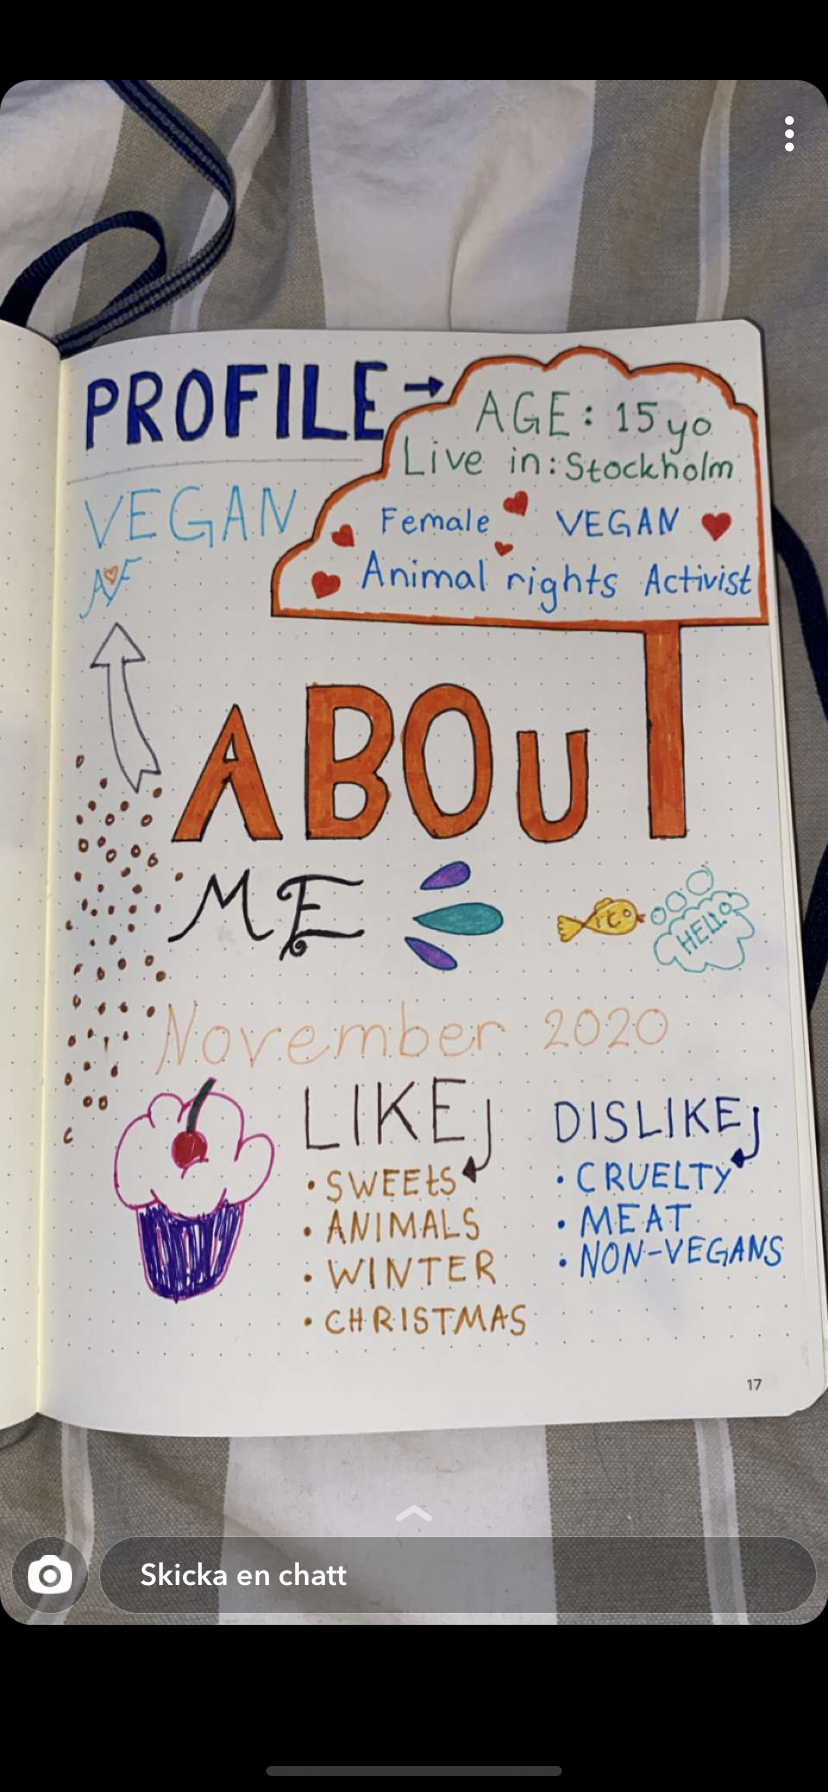 PROFILE →
AGE: 15 yo
Live in: Stockholm
Female VEGAN
Animal rights Activist
VEGAN
AF
ABOUT
ME
HELLO
November 2020
LIKE
• SWEETS
• ANIMALS
• WINTER
• CHRISTMAS
DISLIKE
• CRUELTY
• MEAT
• NON-VEGANS
17
Skicka en chatt